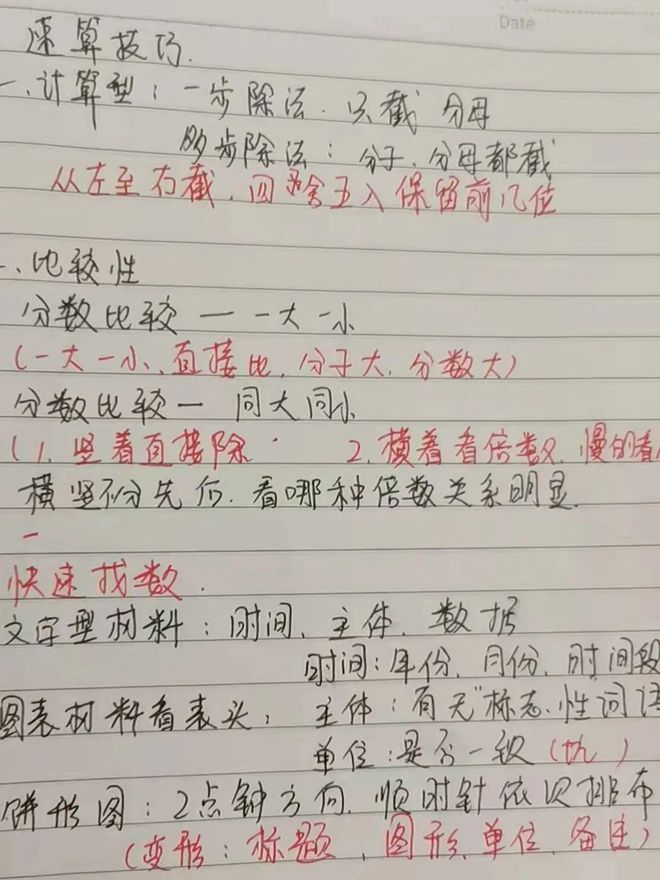 Date
速算技巧.
一.计算型：一步除法.只截 分母
多步除法：分子.分母都截
从左至右截.四舍五入保留前几位
、比较性
分数比较一 一大一小
(一大一小、直接比.分子大.分数大)
分数比较一 同大同小
(1.竖着直接除. 2.横着看倍数.慢的看
横竖不分先后.看哪种倍数关系明显.
快速找数.
文字型材料：时间、主体.数据
时间：年份.月份.时间段
图表材料看表头：主体：有无"标志、性词语
单位：是否一致(坑)
饼形图：2点钟方向.顺时针依次排布
(变形：标题、图形、单位、备注)